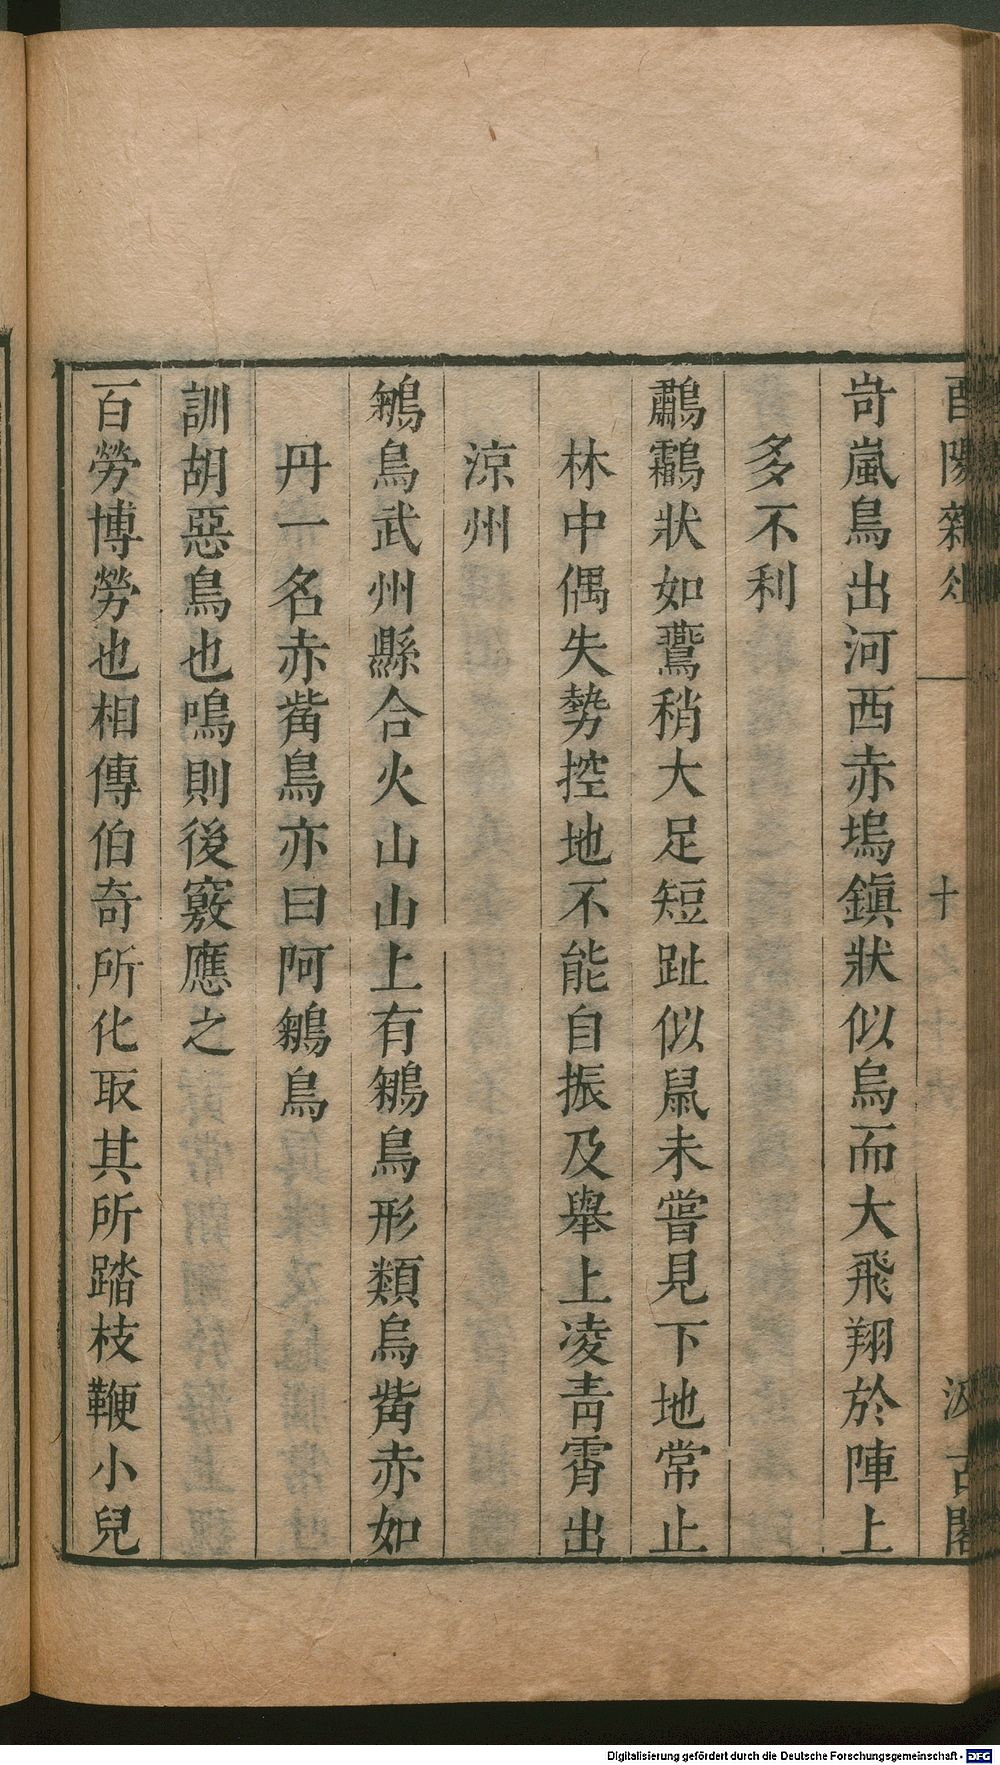 酉陽雜俎 十 汲古閣
岢嵐鳥出河西赤塢鎮狀似烏而大飛翔於陣上
多不利
鷫鸘狀如鷰稍大足短趾似鼠未嘗見下地常止
林中偶失勢控地不能自振及舉上凌青霄出
涼州
鵵鳥武州縣合火山山上有鵵鳥形類烏觜赤如
丹一名赤觜鳥亦曰阿鵵鳥
訓胡惡鳥也鳴則後竅應之
百勞博勞也相傳伯奇所化取其所踏枝鞭小兒
Digitalisierung gefördert durch die Deutsche Forschungsgemeinschaft - DFG